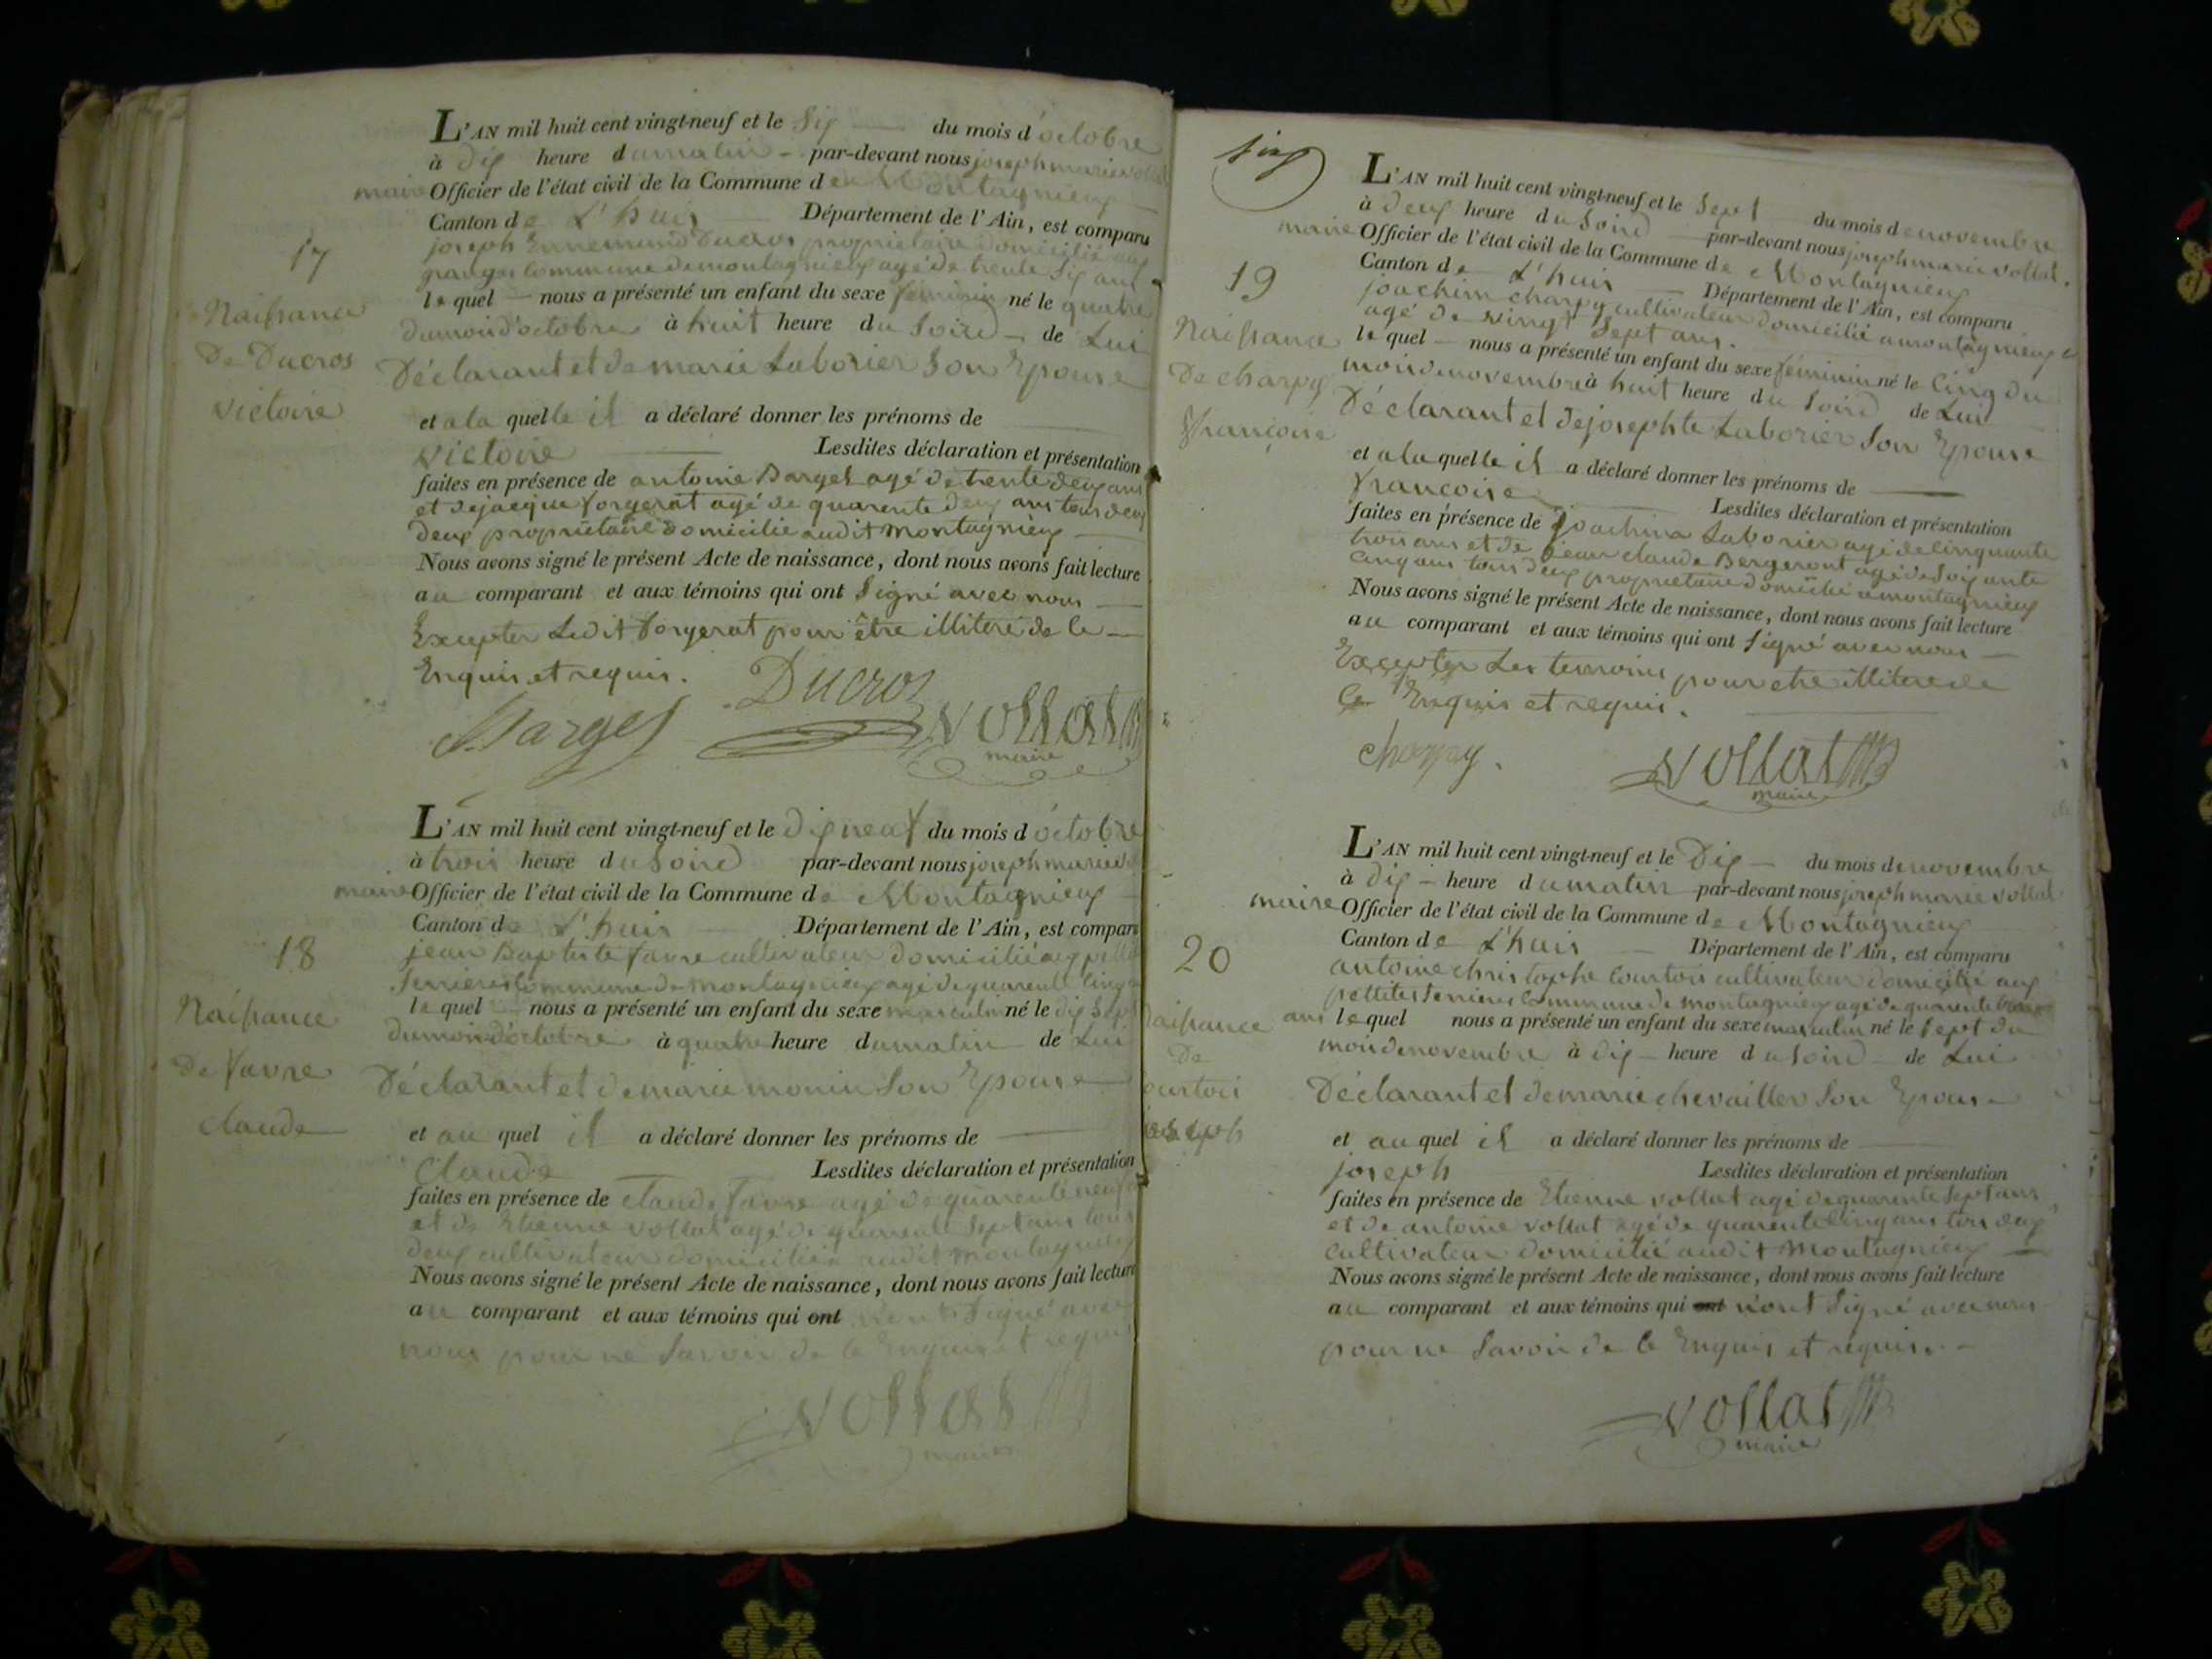 L'AN mil huit cent vingt-neuf et le Six du mois d'octobre
à dix heure du matin - par-devant nous joseph marie
maire Officier de l'état civil de la Commune de Montagnieux
Canton de L'huis Département de l'Ain, est comparu
joseph Ennemond Ducros propriétaire domicilié aux
granges Commune de montagnieux agé de trente Six ans
17
le quel nous a présenté un enfant du sexe féminin né le quatre
du mois d'octobre à huit heure du Soire de Lui
Naissance
De Ducros
victoire
Déclarant et de marie Laborier Son Epouse
et a la quelle il a déclaré donner les prénoms de
victoire Lesdites déclaration et présentation
faites en présence de antoine Barget agé de trente deux ans
et de jacque forgerat agé de quarente deux ans tous deux
deux propriétaire domicilie audit Montagnieux
Nous avons signé le présent Acte de naissance, dont nous avons fait lecture
au comparant et aux témoins qui ont Signé avec nous
Excepter Ledit forgerat pour être illitere de le
Enquis et requis.
Barget Ducros vollat
maire
L'AN mil huit cent vingt-neuf et le dix neuf du mois d'octobre
à trois heure du Soire par-devant nous joseph marie
maire Officier de l'état civil de la Commune de Montagnieux
Canton de L'huis Département de l'Ain, est comparu
jean Baptiste favre cultivateur domicilié aux
Serrieres Commune de montagnieux agé de quarente cinq
18
le quel nous a présenté un enfant du sexe masculin né le dix Sept
du mois d'octobre à quatre heure du matin de Lui
Naissance
De favre
claude
Déclarant et de marie monin Son Epouse
et au quel il a déclaré donner les prénoms de
Claude Lesdites déclaration et présentation
faites en présence de claude favre agé de quarente neuf
et de Etienne vollat agé de quarente Sept ans tous
deux cultivateur domicilié audit montagnieux
Nous avons signé le présent Acte de naissance, dont nous avons fait lecture
au comparant et aux témoins qui ont n'ont Signé avec
nous pour ne Savoir de le Enquis et requis
vollat
maire
Six
L'AN mil huit cent vingt-neuf et le Sept du mois de novembre
à deux heure du Soire par-devant nous joseph marie vollat
maire Officier de l'état civil de la Commune de Montagnieux
Canton de L'huis Département de l'Ain, est comparu
joachim charpy cultivateur domicilié a montagnieux
agé de vingt Sept ans.
19
le quel nous a présenté un enfant du sexe féminin né le cinq du
mois de novembre à huit heure du Soire de Lui
Naissance
De charpy
françoise
Déclarant et de josephte Laborier Son Epouse
et a la quelle il a déclaré donner les prénoms de
francoise Lesdites déclaration et présentation
faites en présence de joachim Laborier agé de cinquante
trois ans et de jean claude Bergeront agé de Soixante
cinq ans tous deux propriétaire domicilié a montagnieux
Nous avons signé le présent Acte de naissance, dont nous avons fait lecture
au comparant et aux témoins qui ont Signé avec nous
Excepter Les temoins pour etre illitere de
Ce Enquis et requis.
charpy. vollat
maire
L'AN mil huit cent vingt-neuf et le Dix du mois de novembre
à dix heure du matin par-devant nous joseph marie vollat
maire Officier de l'état civil de la Commune de Montagnieux
Canton de L'huis Département de l'Ain, est comparu
antoine christophe Courtois cultivateur domicilié aux
pettites Serrieres Commune de montagnieux agé de quarente
20
ans le quel nous a présenté un enfant du sexe masculin né le Sept du
mois de novembre à dix heure du Soire de Lui
Naissance
De
ourtois
joseph
Déclarant et de marie chevailler Son Epouse
et au quel il a déclaré donner les prénoms de
joseph Lesdites déclaration et présentation
faites en présence de Etienne vollat agé de quarente Sept ans
et de antoine vollat agé de quarente cinq ans tous deux
Cultivateur domicilié audit Montagnieux
Nous avons signé le présent Acte de naissance, dont nous avons fait lecture
au comparant et aux témoins qui ont n'ont Signé avec nous
pour ne Savoir de le Enquis et requis.
vollat
maire